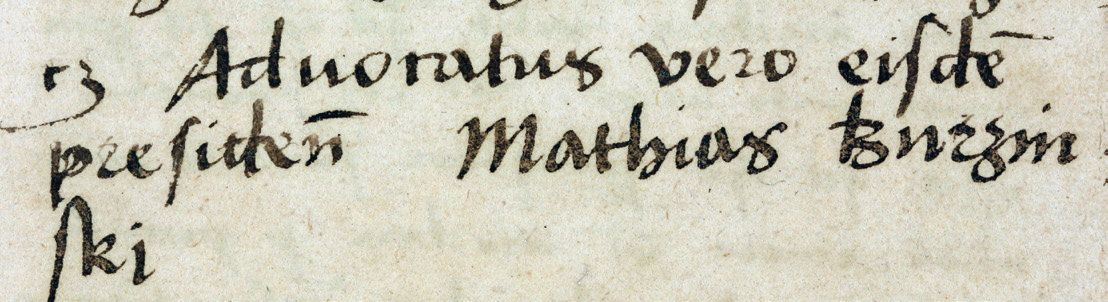 cz Aduocatus vero eisdē
presiden̄ Mathias kurzin
ski